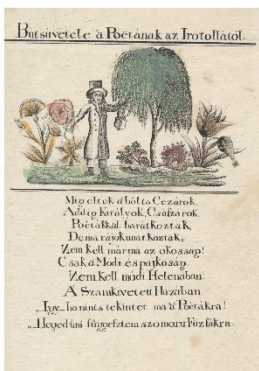 Bútsúvetele a Poétának az Irótollától.
Mig éltek a bólts Cézárok,
Addig Királyok, Császárok
Poétákkal barátkoztak,
De ma rájok unatkoztak,
Nem kell már ma az okosság!
Csak a Módi és pajkosság.
Nem kell múdi Helenában.
A Számkivetett Hazában.
„Igy ha nints tekintet ma a Poétákra!
„Hegedűmi függesztem szomorú Fűzfákra.